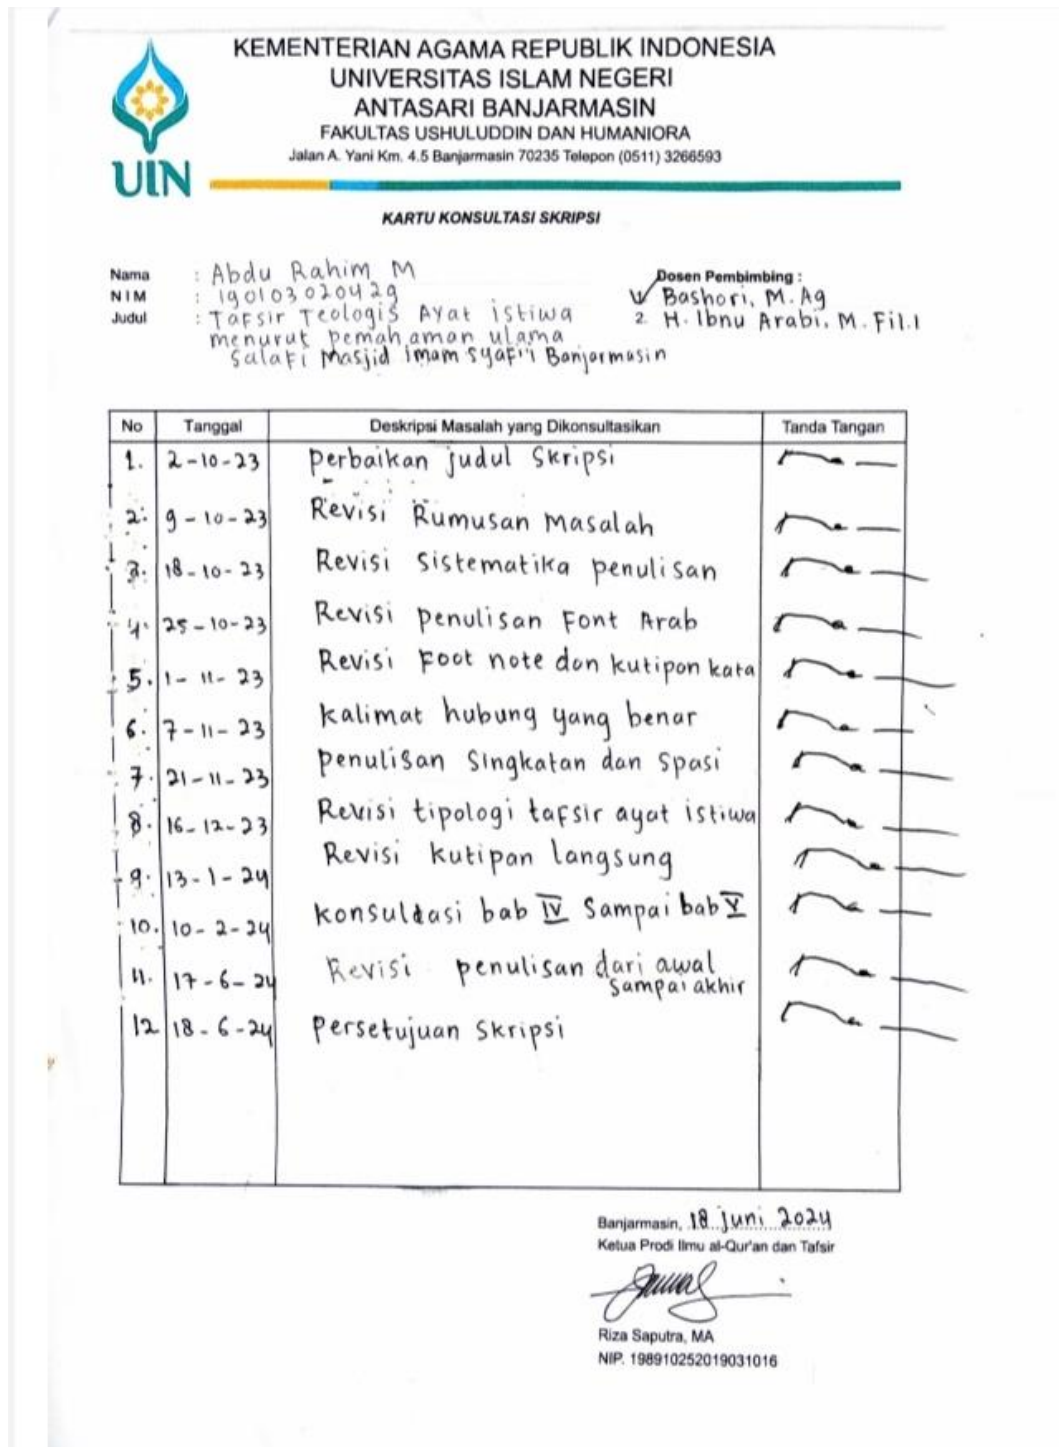 KEMENTERIAN AGAMA REPUBLIK INDONESIA
UNIVERSITAS ISLAM NEGERI
ANTASARI BANJARMASIN
FAKULTAS USHULUDDIN DAN HUMANIORA
Jalan A. Yani Km. 4.5 Banjarmasin 70235 Telepon (0511) 3266593
UIN
KARTU KONSULTASI SKRIPSI
Nama : Abdu Rahim M
NIM : 190103020429
Judul : Tafsir Teologis Ayat istiwa
menurut pemahaman ulama
Salafi Masjid imam syafi'i Banjarmasin
Dosen Pembimbing :
Bashori, M.Ag
2. H. Ibnu Arabi, M.Fil.I
No Tanggal Deskripsi Masalah yang Dikonsultasikan Tanda Tangan
1. 2-10-23 perbaikan judul Skripsi
2. 9-10-23 Revisi Rumusan Masalah
3. 18-10-23 Revisi Sistematika penulisan
4. 25-10-23 Revisi penulisan Font Arab
5. 1-11-23 Revisi Foot note dan kutipan kata
6. 7-11-23 kalimat hubung yang benar
7. 21-11-23 penulisan Singkatan dan Spasi
8. 16-12-23 Revisi tipologi tafsir ayat istiwa
9. 13-1-24 Revisi kutipan langsung
10. 10-2-24 konsultasi bab IV Sampai bab V
11. 17-6-24 Revisi penulisan dari awal
sampai akhir
12 18-6-24 Persetujuan Skripsi
Banjarmasin, 18 juni 2024
Ketua Prodi Ilmu al-Qur'an dan Tafsir
Riza Saputra, MA
NIP. 198910252019031016